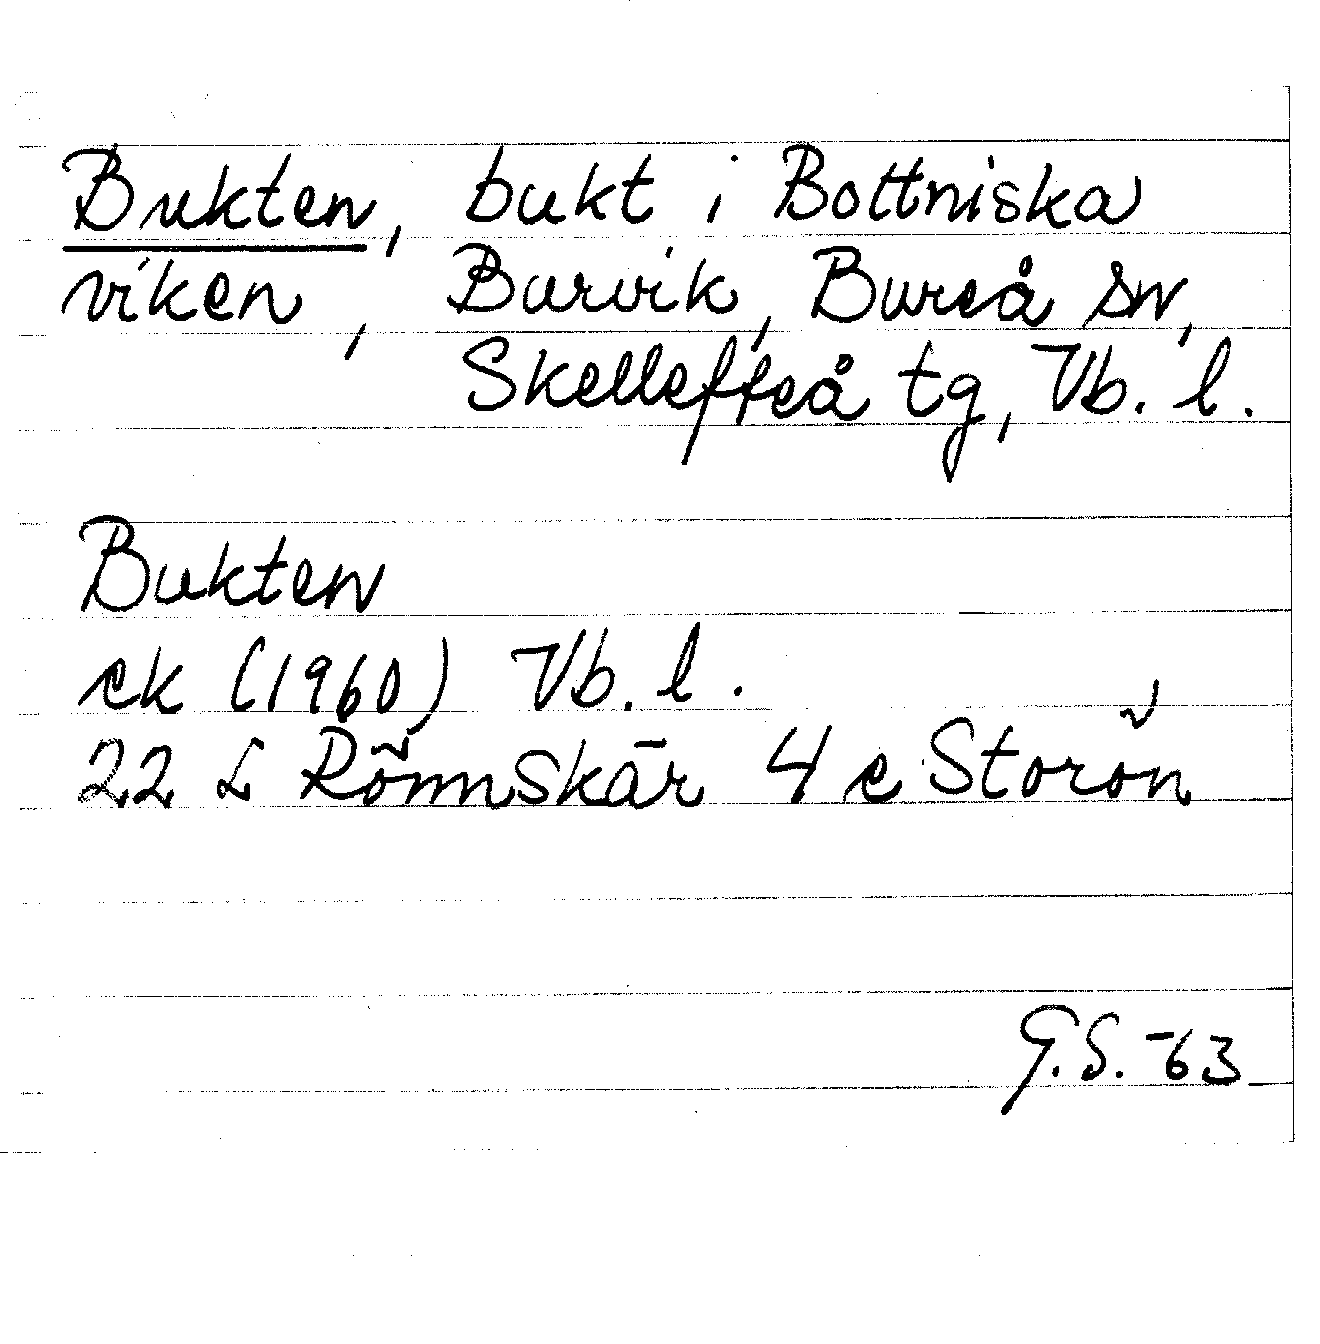 Bukten, bukt i Bottniska
viken, Burvik, Bureå sn,
Skellefteå tg, Vb. l.
Bukten
ek (1960) Vb. l.
22 L Rönnskär 4 e Storön
G.S. -63